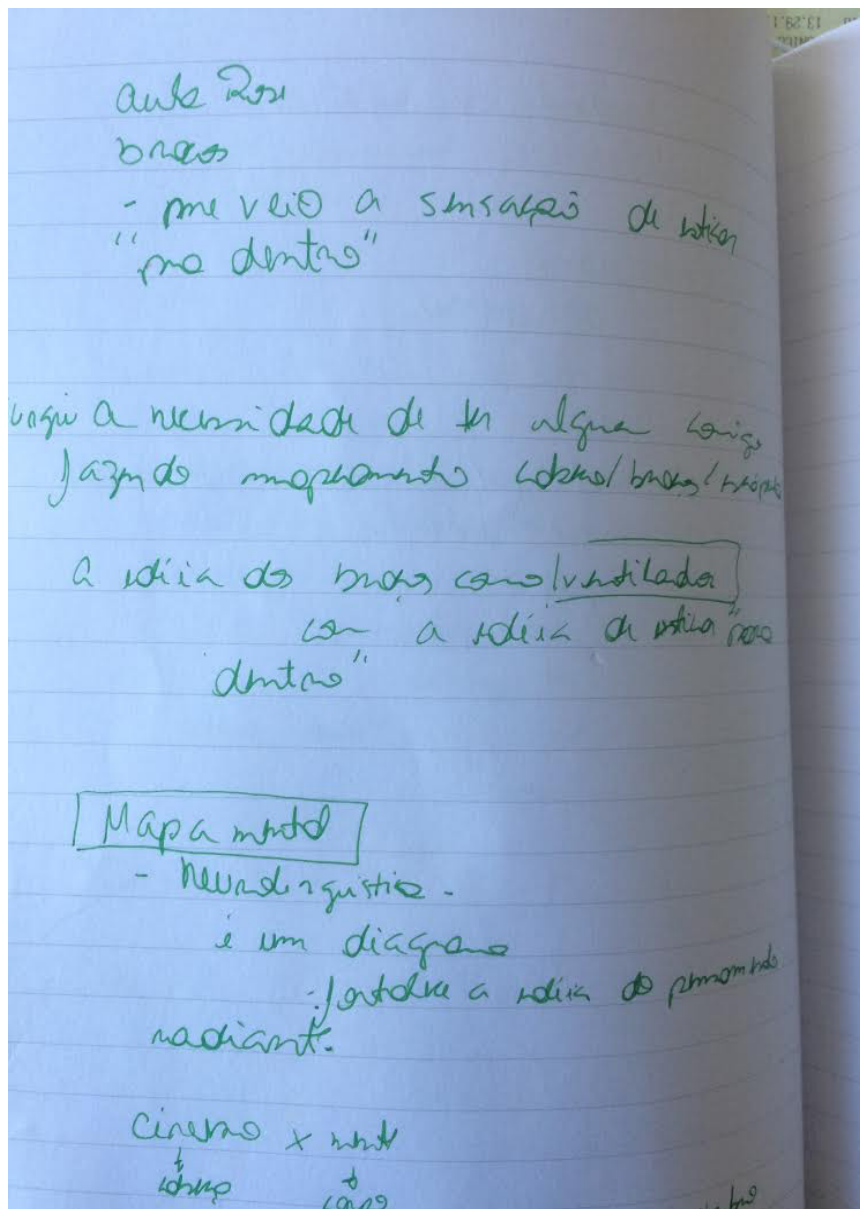 aula Rose
braços
- me veio a sensação de
"pra dentro"
a necessidade de ter alguem comigo
fazendo mapeamento cabeça/braços/
a idéia dos braços como ventilador
com a idéia de "para
dentro"
Mapa mental
- Neurolinguistica -
é um diagrama
- fortalece a idéia do pensamento
radiante.
cinema x
cabeça corpo